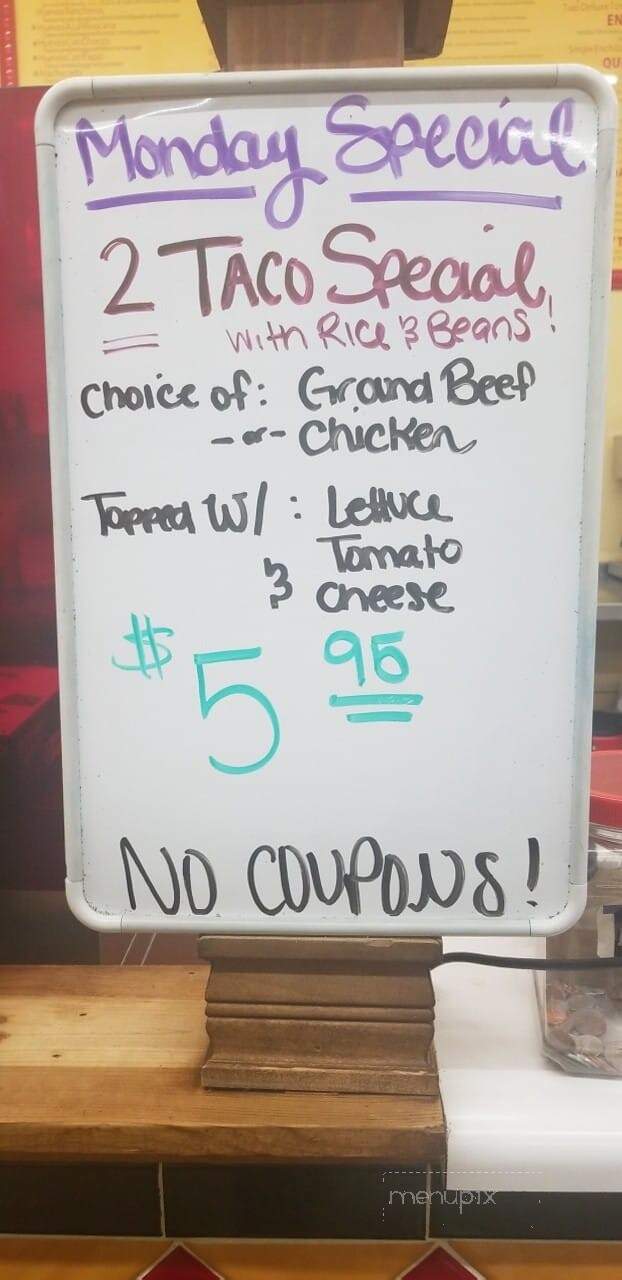 Monday Special
2 TACO Special,
with Rice & Beans!
Choice of: Ground Beef
-or- Chicken
Topped W/: Lettuce
Tomato
& Cheese
$5 95
NO COUPONS!
menupix